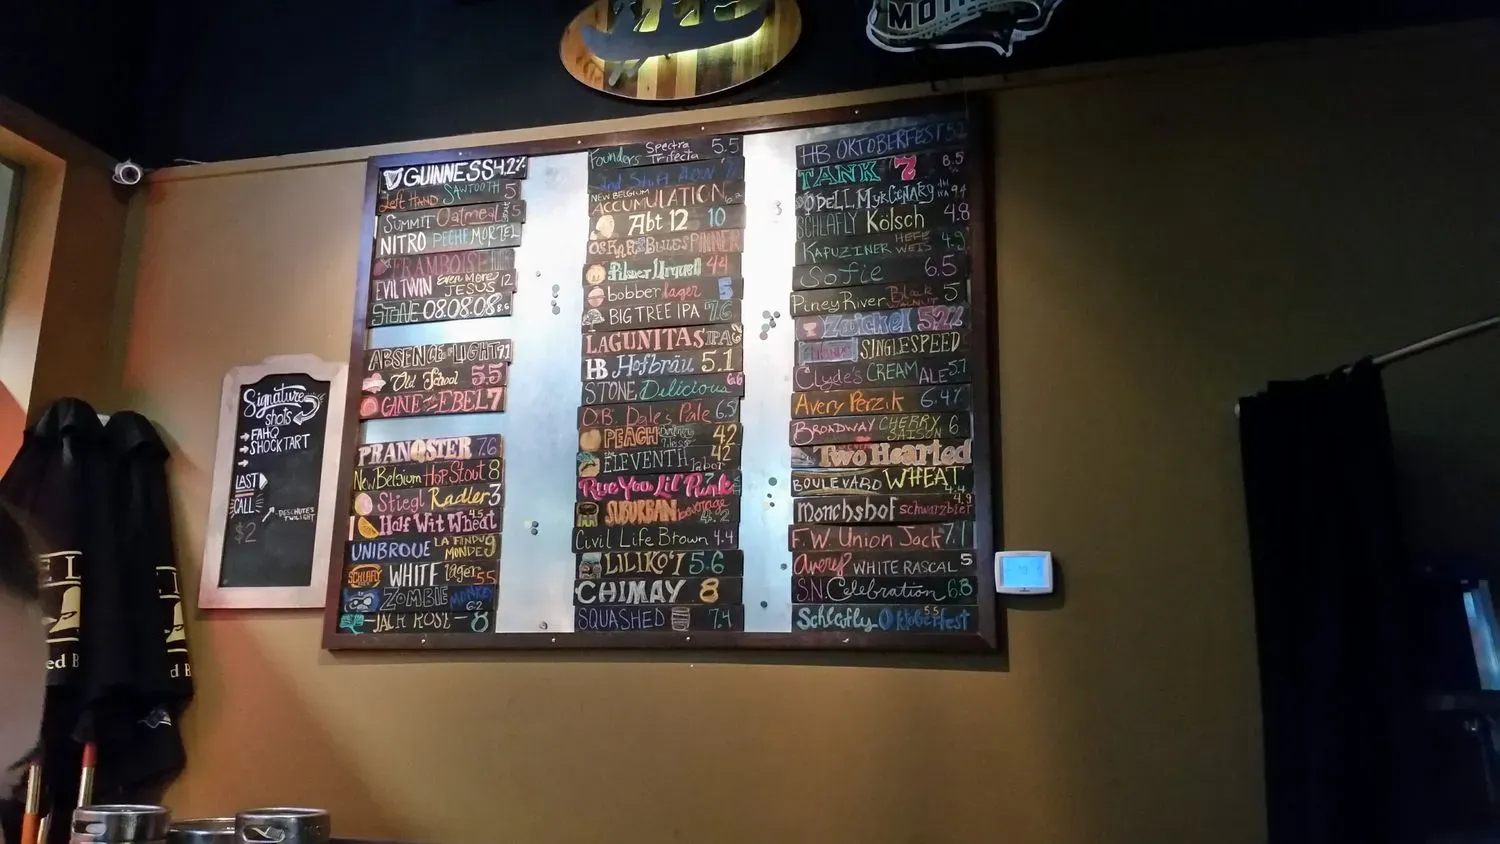 MOTH
GUINNESS 4.2%
Left Hand SAWTOOTH 5
SUMMIT Oatmeal 5
NITRO PECHE MORTEL
FRAMBOISE
EVIL TWIN Even More JESUS 12
STONE 08.08.08 8.6
ABSENCE OF LIGHT 7.1
Old School 5.5
GINE ZEBEL 7
PRANQSTER 7.6
New Belgium Hop Stout 8
Stiegl Radler 3
Half Wit Wheat 4.5
UNIBROUE LA FIN DU MONDE 9
SCHLAFLY WHITE lager 5.5
ZOMBIE MONKEY 6.2
JACK ROSE 8
Founders Spectra Trifecta 5.5
2nd Shift
NEW BELGIUM ACCUMULATION 6.2
Abt 12 10
OSKAR BLUES PINNER
Pilsner Urquell 4.4
bobber lager 5
BIG TREE IPA 7.6
LAGUNITAS IPA
HB Hofbräu 5.1
STONE Delicious 6.6
O.B. Dale's Pale 6.5
PEACH 4.2
ELEVENTH labor 4.2
Rue You Lil' Punk 7
SUBURBAN beverage 4.2
Civil Life Brown 4.4
LILIKO'I 5.6
CHIMAY 8
SQUASHED 7.4
HB OKTOBERFEST 5.2
TANK 7 8.5
ODELL Myrcenary 9.4
SCHLAFLY Kölsch 4.8
KAPUZINER HEFE WEIS 4.9
Sofie 6.5
Piney River Black WALNUT 5
Zwickel 5.2%
SINGLESPEED
Clyde's CREAM ALE 5.7
Avery Perzik 6.47
BROADWAY CHERRY SAISON 6
Two Hearted
BOULEVARD WHEAT 4.4
Monchshof schwarzbier 4.9
F.W. Union Jack 7.1
avery WHITE RASCAL 5
S.N. Celebration 6.8
Schlafly Oktoberfest 5.5
Signature shots
→ FAHQ
→ SHOCKTART
→
LAST CALL
DESCHUTES TWILIGHT
$2
ed B
d B